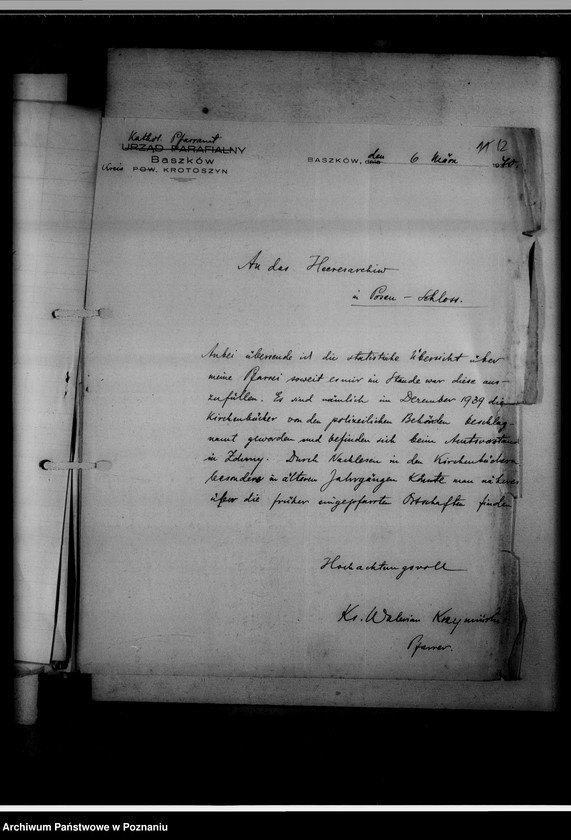 Kathol. Pfarramt
URZĄD PARAFIALNY
Baszków
Kreis POW. KROTOSZYN
BASZKÓW, den dnia 6 März 1940.
11 12
An das Heeresarchiw
in Posen – Schloss.
Anbei übersende ich die statistiche Übersicht über
meine Pfarrei soweit es mir im Stande war diese aus-
zufüllen. Es sind nämlich im Dezember 1939 die
Kirchenbücher von den polizeilichen Behörden beschlag-
namt geworden und befinden sich beim Amtsvorstand
in Zduny. Durch Nachlesen in den Kirchenbüchern
besonders in älteren Jahrgängen könnte man näheres
über die früher eingepfarrte Ortschaften finden
Hochachtungsvoll
Ks. Walerian
Pfarrer.
Archiwum Państwowe w Poznaniu